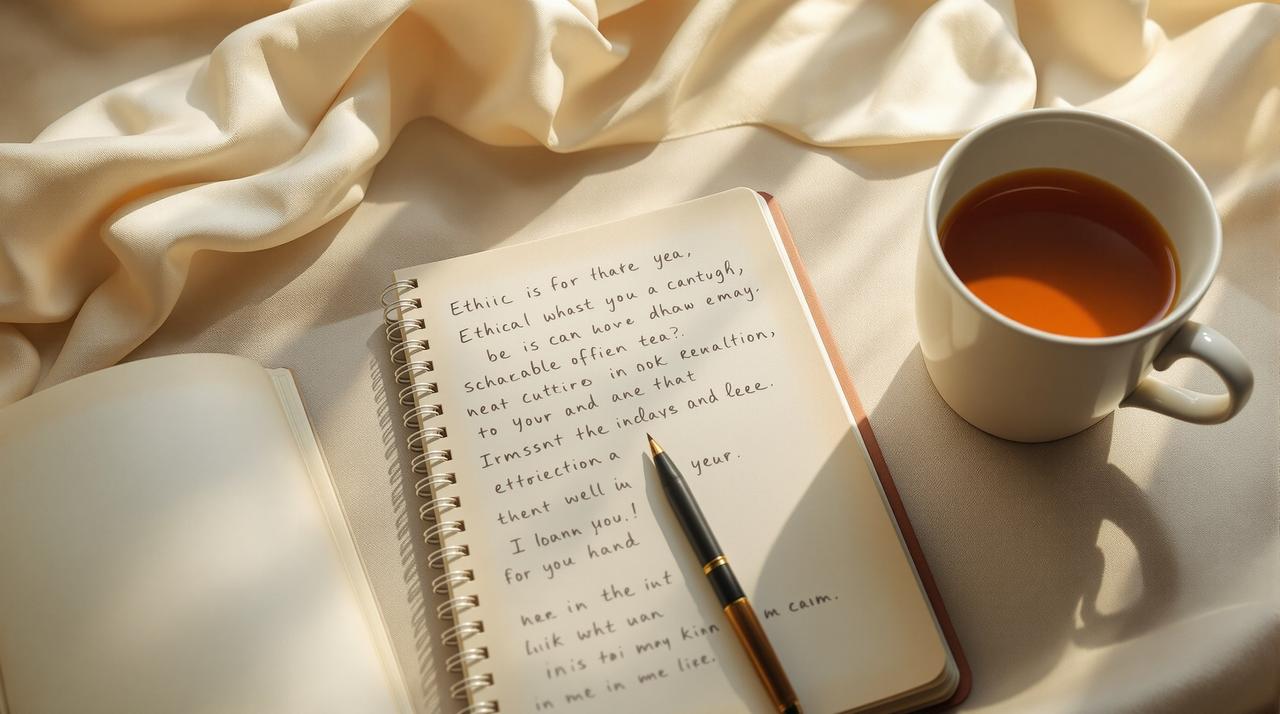 Ethiic is for thate yea,
Ethical whast you a cantugh,
be is can uove dhaw emay.
schacable offien tea?.
neat cuttiro in ook rewaltion,
to your and ane that
Irmssnt the indays and leee.
ettoiection a yeur.
thent well in
I loann you.!
for you hand
her in the iut
wht uan m calm.
in is tai may kinn
in me in me lire.